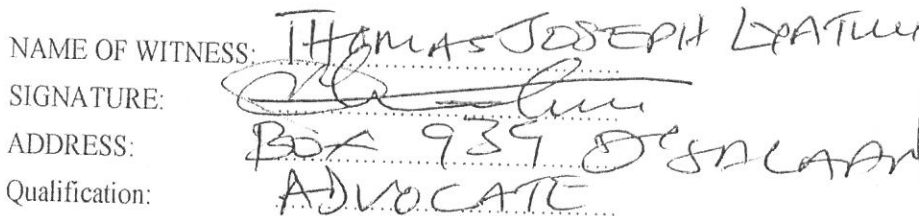 NAME OF WITNESS: THOMAS JOSEPH
SIGNATURE:
ADDRESS: BOX 939 D'SALAAM
Qualification: ADVOCATE